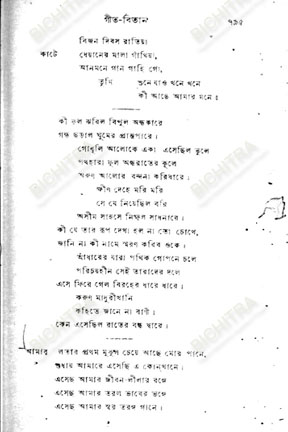 গীত-বিতান
৭৯৫
বিজন দিবস রাতিয়া
কাটে ধেয়ানের মালা গাঁথিয়া,
আনমনে গান গাহি গো,
তুমি শুনে যাও খনে খনে
কী আছে আমার মনে॥
কী ফুল ঝরিল বিপুল অন্ধকারে
গন্ধ ছড়াল ঘুমের প্রান্তপারে।
গোধূলি আলোকে একা এসেছিল ভুলে
পথহারা ফুল অন্ধরাতের কূলে
অরুণ আলোর বন্দনা করিবারে।
ক্ষীণ দেহে মরি মরি
সে যে নিয়েছিল বরি
অসীম সাহসে নিষ্ফল সাধনারে।
কী যে তার রূপ দেখা হল না তো চোখে,
জানি না কী নামে স্মরণ করিব ওকে।
আঁধারের যারা পথিক গোপনে চলে
পরিচয়হীন সেই তারাদের দলে
এসে ফিরে গেল বিরহের ধারে ধারে।
করুণ মাধুরীখানি
কহিতে জানে না বাণী।
কেন এসেছিল রাতের বন্ধ দ্বারে।
আমার লতার প্রথম মুকুল চেয়ে আছে মোর পানে,
শুধায় আমারে এসেছি এ কোনখানে।
এসেছ আমার জীবন লীলার রঙ্গে
এসেছ আমার তরল ভাবের ভঙ্গে
এসেছ আমার স্বর তরঙ্গ গানে।
BICHITRA